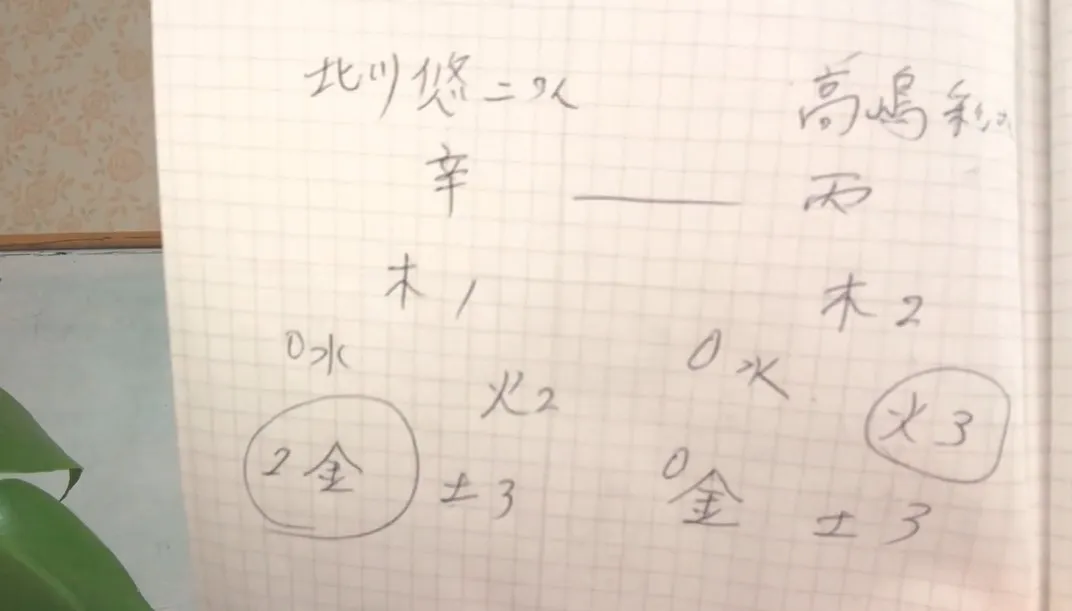 北川悠二さん 高嶋彩さん
辛 丙
木1 木2
0水 0水
火2 火3
2金 土3 0金 土3